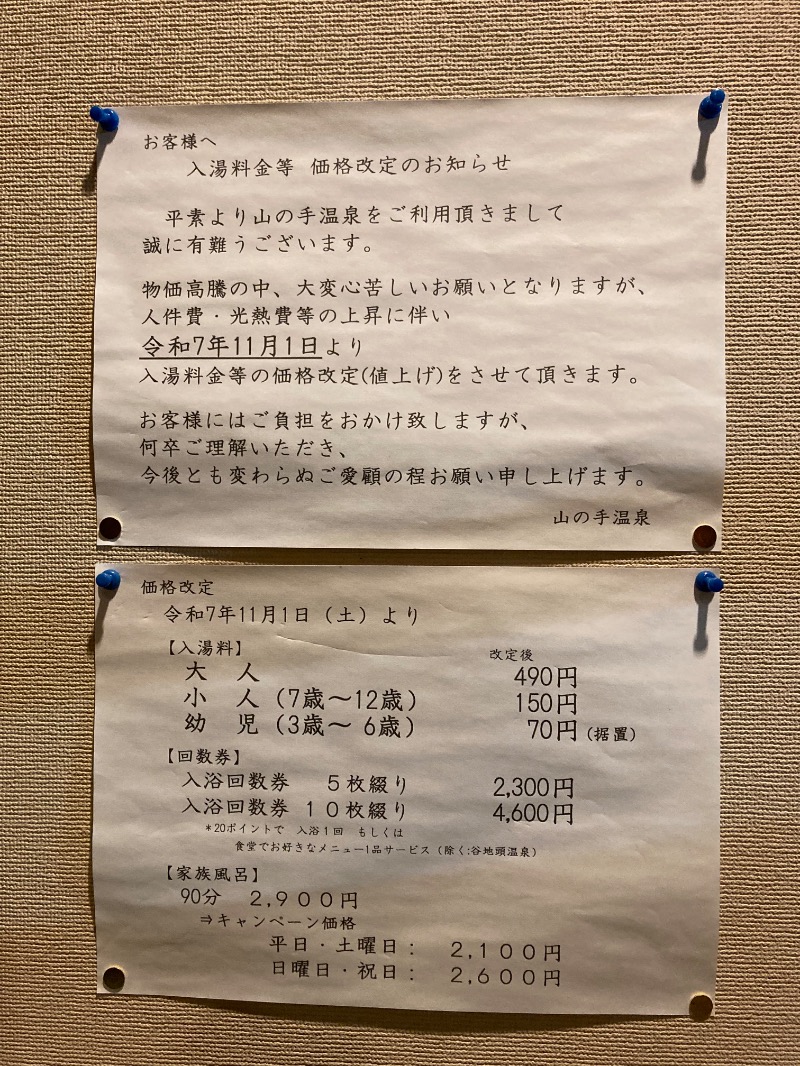 お客様へ
入湯料金等 価格改定のお知らせ
平素より山の手温泉をご利用頂きまして
誠に有難うございます。
物価高騰の中、大変心苦しいお願いとなりますが、
人件費・光熱費等の上昇に伴い
令和7年11月1日より
入湯料金等の価格改定(値上げ)をさせて頂きます。
お客様にはご負担をおかけ致しますが、
何卒ご理解いただき、
今後とも変わらぬご愛顧の程お願い申し上げます。
山の手温泉
価格改定
令和7年11月1日（土）より
【入湯料】 改定後
大 人 490円
小 人（7歳～12歳） 150円
幼 児（3歳～ 6歳） 70円（据置）
【回数券】
入浴回数券 ５枚綴り 2,300円
入浴回数券 １０枚綴り 4,600円
＊20ポイントで 入浴１回 もしくは
食堂でお好きなメニュー1品サービス（除く:谷地頭温泉）
【家族風呂】
90分 ２,９００円
⇒キャンペーン価格
平日・土曜日： ２,１００円
日曜日・祝日： ２,６００円